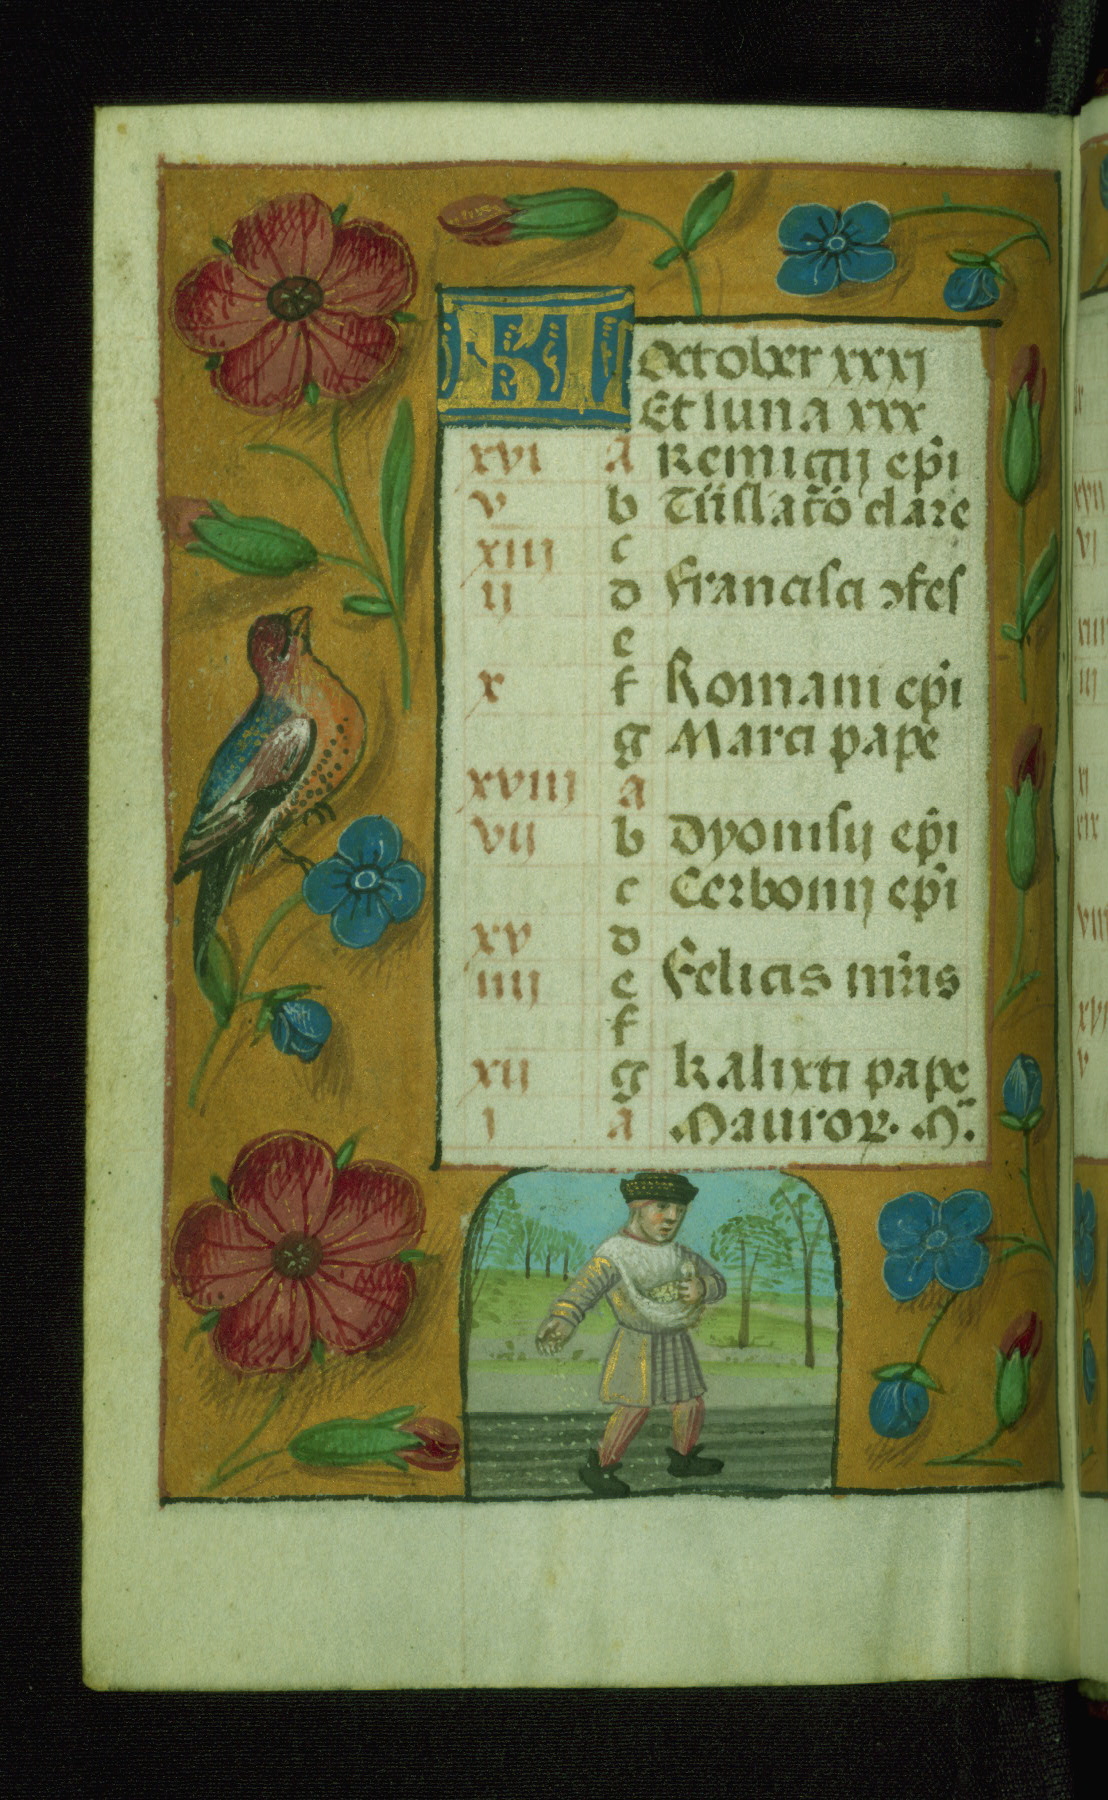 Kl October xxxj
Et luna xxx
xvi A Remigij ep̄i
v b Trās
xiij c
ij d Francisci ɔfeſ
e
x f Romani ep̄i
g Marci pape
xviij A
vij b Dyonisij ep̄i
c Cerbonij ep̄i
xv d
iiij e Felicis mr̄is
f
xij g Kalixti pape
i A Mauroꝝ. M.